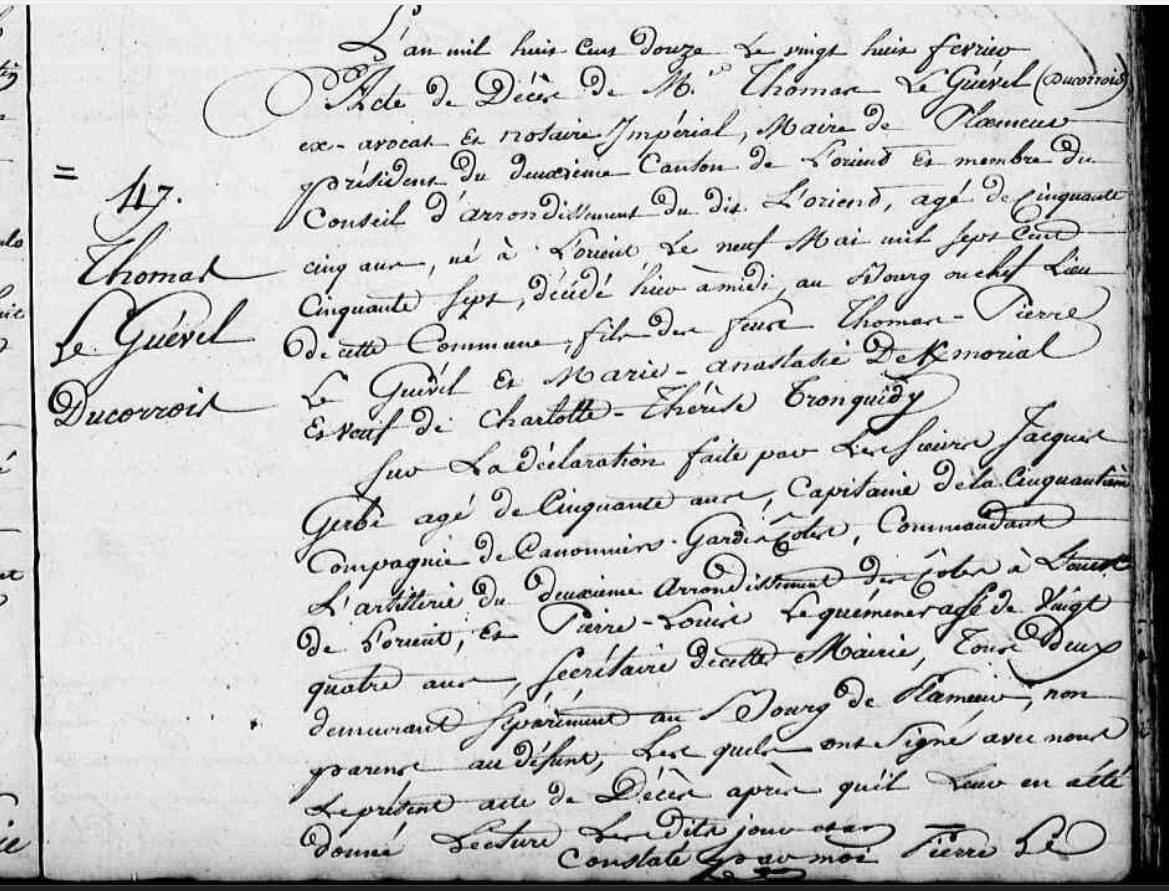 =
47.
Thomas
Le Guével
Ducorrois
L'an mil huit cent douze le vingt huit fevrier
Acte de Décès de Mr. Thomas Le Guével (Ducorrois)
ex-avocat et notaire Impérial, Maire de Ploemeur
président du deuxième Canton de Lorient et membre du
Conseil d'arrondissement du dit L'orient, agé de Cinquante
cinq ans, né à Lorient le neuf Mai mil sept Cent
Cinquante sept, décédé hier à midi, au Bourg ou chef Lieu
de cette Commune, fils des feus Thomas-Pierre
Le Guével et Marie-anastasie De Kmorial
Et veuf de Charlotte-Thérèse Tronquidy
Sur la déclaration faite par Les Sieurs Jacques
Gerbe agé de Cinquante ans, Capitaine de la Cinquantième
Compagnie de Canonniers-Gardes Côtes, Commandant
L'artillerie du deuxième Arrondissement des Côtes à L'ouest
de Lorient, Et Pierre-Louis Lequémener agé de Vingt
quatre ans, Secrétaire de cette Mairie, Tous deux
demeurant séparément au Bourg de Plameur, non
parens au défunt, Les quels ont Signé avec nous
Le présent acte de Décès après qu'il Leur en a été
donné Lecture Les dits jour et an
Constaté par moi Pierre Le